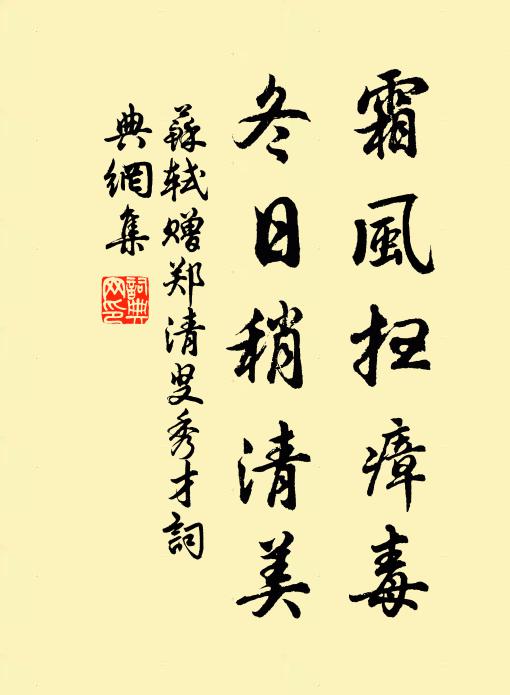 霜風扫瘴毒
冬日稍清美
蘇轼赠郑清叟秀才詞
典網集
詞典
网印